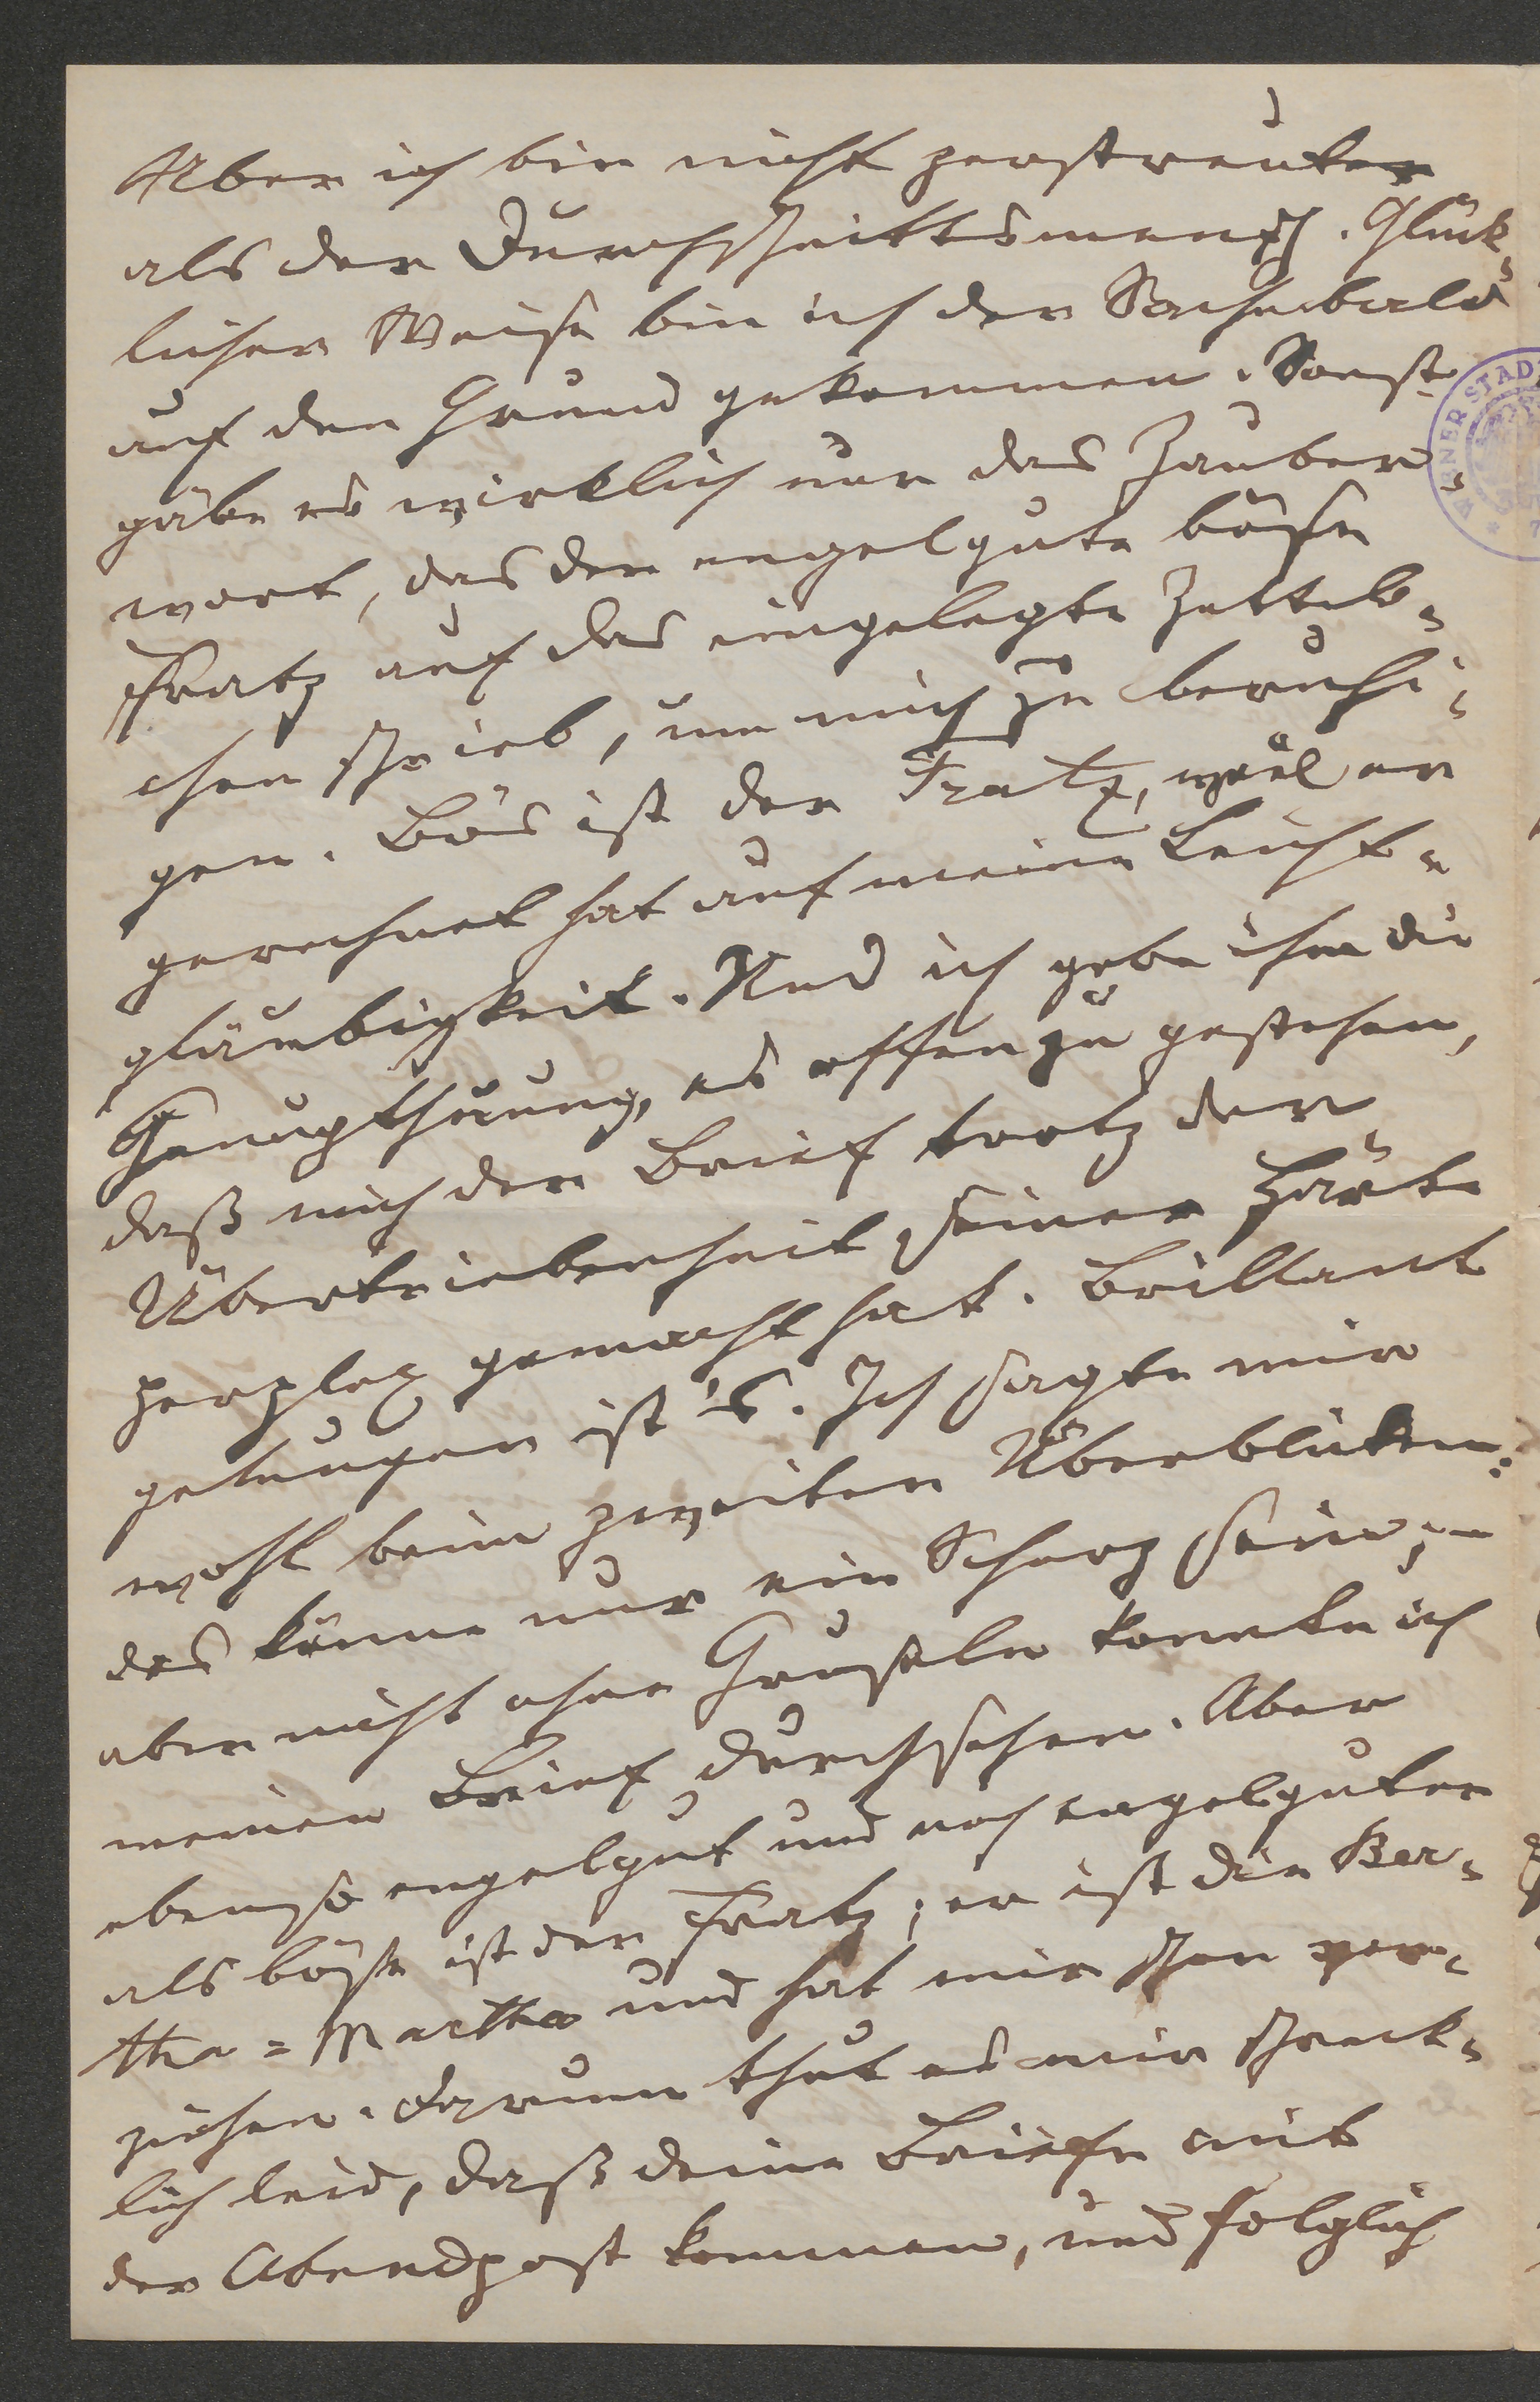 Aber ich bin nicht zerstreuter
als der Durchschnittsmensch. Glück-
licher Weise bin ich der Sache bald
auf den Grund gekommen. Sonst
gäbe es wirklich nur das Zauber-
wort, das der engelgute böse
Fratz auf das eingelegte Zettel-
chen schrieb, um mich zu beruhi-
gen. Bös ist der Fratz, weil er
gerechnet hat auf meine Leicht-
gläubigkeit. Und ich gebe ihm die
Genugthuung, es offen zu gestehen,
daß mich der Brief trotz der
Übertriebenheit seiner Härte
perplex gemacht hat. Brillant
gelungen ist 's. Ich sagte mir
wohl beim zweiten Überblicken:
das könne nur ein Scherz sein; –
aber nicht ohne Gruseln konnte ich
meinen Brief durchsehen. Aber
ebenso engelgut und noch engelguter
als böse ist der Fratz; er ist die Ber-
tha=Martha und hat mir schon ver-
ziehen. Darum thut es mir schreck-
lich leid, daß deine Briefe mit
der Abendpost kommen, und folglich
WIENER STAD